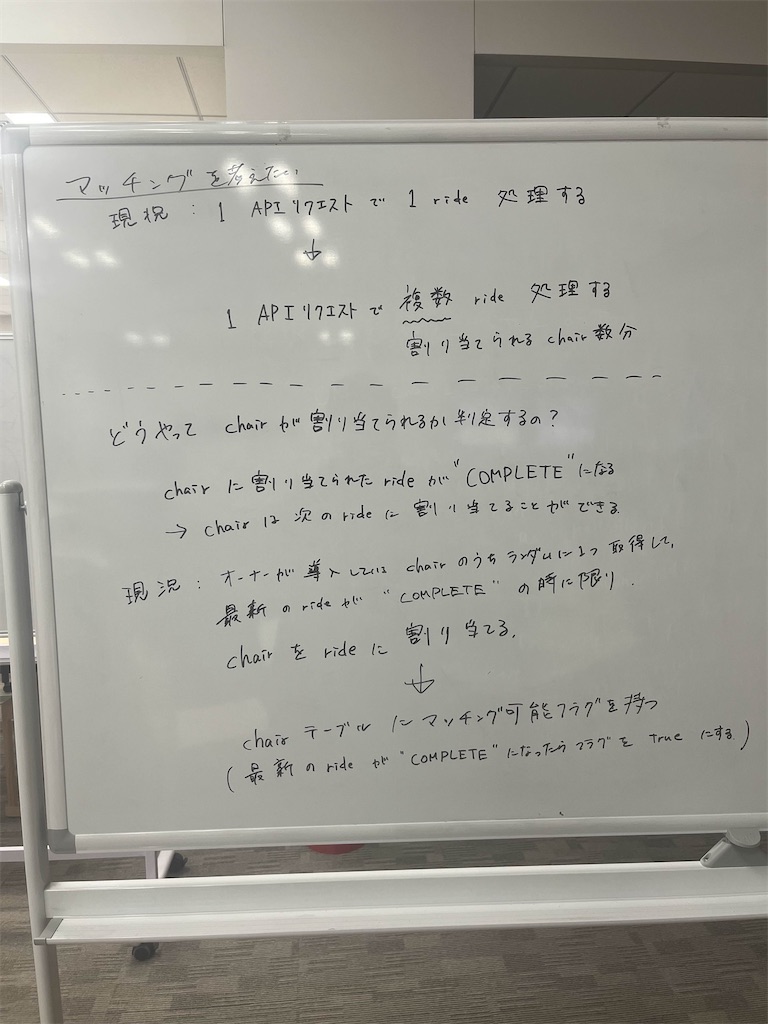 マッチングを考えたい
現況 : 1 APIリクエストで 1 ride 処理する
↓
1 APIリクエストで 複数 ride 処理する
割り当てられる chair 数分
どうやって chair が割り当てられるか判定するの?
chair に割り当てられた ride が "COMPLETE" になる
→ chair は次の ride に割り当てることができる.
現況 : オーナーが導入している chair のうちランダムに1つ取得して,
最新の ride が "COMPLETE" の時に限り.
chair を ride に 割り当てる.
↓
chair テーブルにマッチング可能フラグを持つ
(最新の ride が "COMPLETE" になったらフラグを true にする)